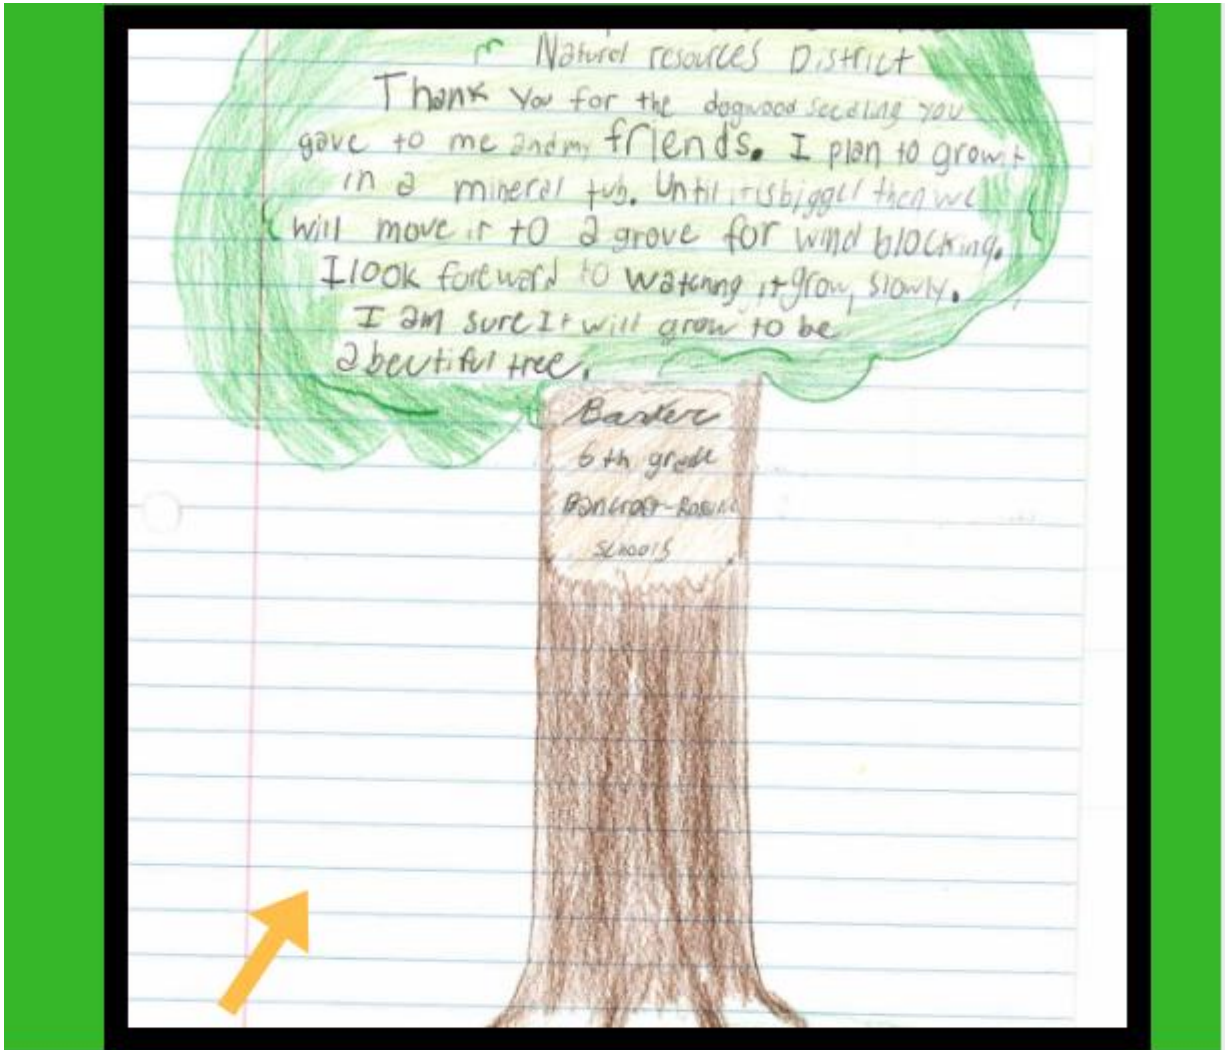 Natural resources District
Thank You for the dogwood seedling you
gave to me and my friends. I plan to grow it
in a mineral tub. Until it is bigger then we
will move it to a grove for wind blocking.
I look foreward to watching it grow, slowly.
I am sure It will grow to be
a beutiful tree.
6th grade
Bancroft-Rosalie
schools